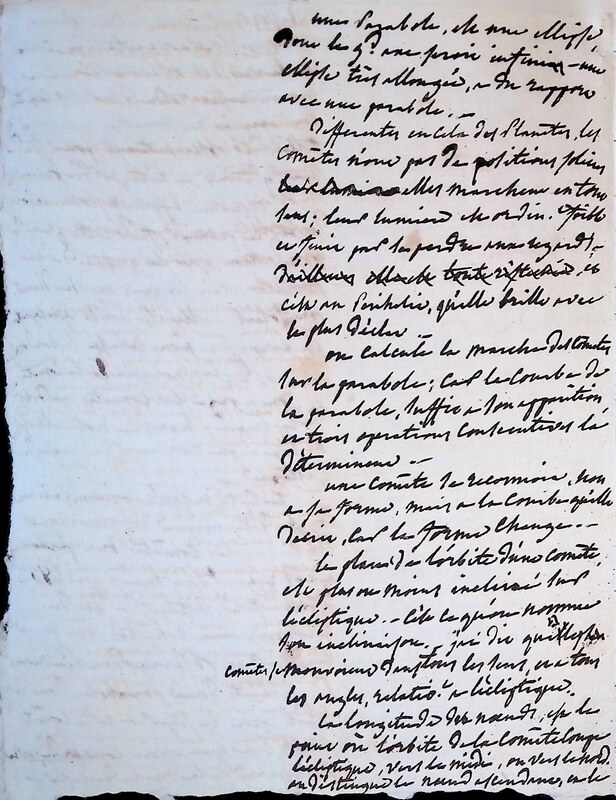 une Parabole, est une ellipse,
Dont les gds axe seroit infinis - une
ellipse très allongée, a du rapport
avec une parabole. -
Differentes en cela des Planetes, les
Comètes n'ont pas de positions
elles marchent en tous
sens; leur lumiere est ordin. foible
et finit par se perdre aux regards; -
et
c'est au Perihelie, qu'elle brille avec
le plus d'éclat -
on Calcule la marche des Cometes
sur la parabole; car la Courbe de
la parabole, suffit a son apparition
et trois operations Consecutives la
Déterminent -
une Comète se reconnoit, non
a sa forme, mais a la Courbe qu'elle
Decrit, Car la forme Change. -
le plan de l'orbite d'une Comète,
est plus ou moins incliné sur
l'écliptique. - C'est ce qu'on nomme
son inclinaison. - j'ai dit que les
Comètes se Mouvoient Dans tous les sens, et a tous
les angles, relatio.t a l'écliptique.
la longitude des noeuds, est le
point où l'orbite de la Comète Coupe
l'écliptique, vers le midi, ou vers le nord
on distingue le noeud ascendant, et le